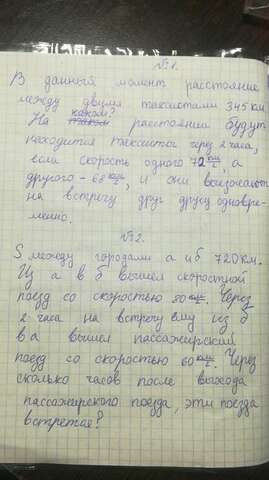 №1.
В данный момент расстояние
между двумя таксистами 345 км.
На каком? расстоянии будут
находится таксисты через 2 часа,
если скорость одного 72 км/ч, а
другого - 68 км/ч, и они выезжают
на встречу друг другу одновре-
менно.
№2.
S между городами а и б 720 км.
Из а в б вышел скоростной
поезд со скоростью 80 км/ч. Через
2 часа на встречу ему из б
в а вышел пассажирский
поезд со скоростью 60 км/ч. Через
сколько часов после выхода
пассажирского поезда, эти поезда
встретяться?